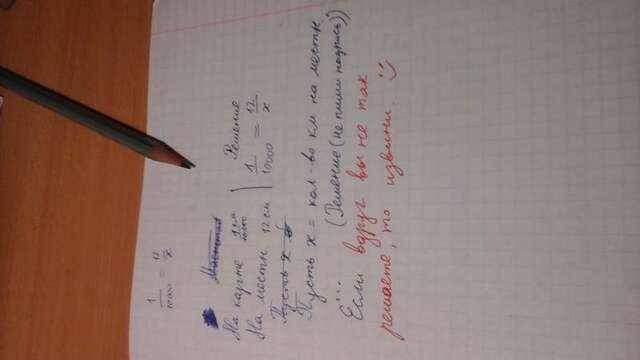 1/10000 = 12/x
На карте 1 см/10000
На местн. 12 см
Решение
1/10000 = 12/x
Пусть x
Пусть x = кол-во км на местн.
(Решение (не пиши надпись))
Если вдруг вы не так
решаете, то извини. :)